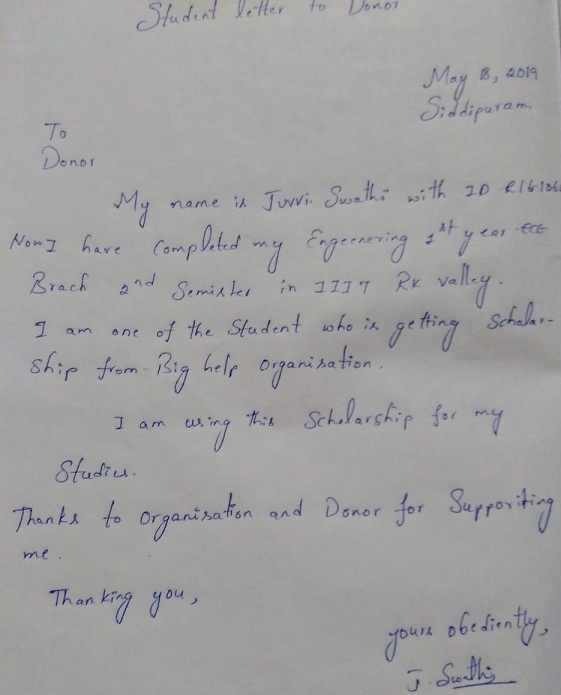 Student letter to Donor
May 8, 2019
Siddipuram.
To
Donor
My name is Juvvi. Swathi with ID R16106
Now I have Completed my Engeenering 1st year ECE
Brach 2nd Semister in IIIT Rk valley.
I am one of the Student who is getting Scholar-
ship from Big help organisation.
I am using this Scholarship for my
Studies.
Thanks to Organisation and Donor for Supporiting
me.
Thanking you,
yours obediently,
J. Swathi